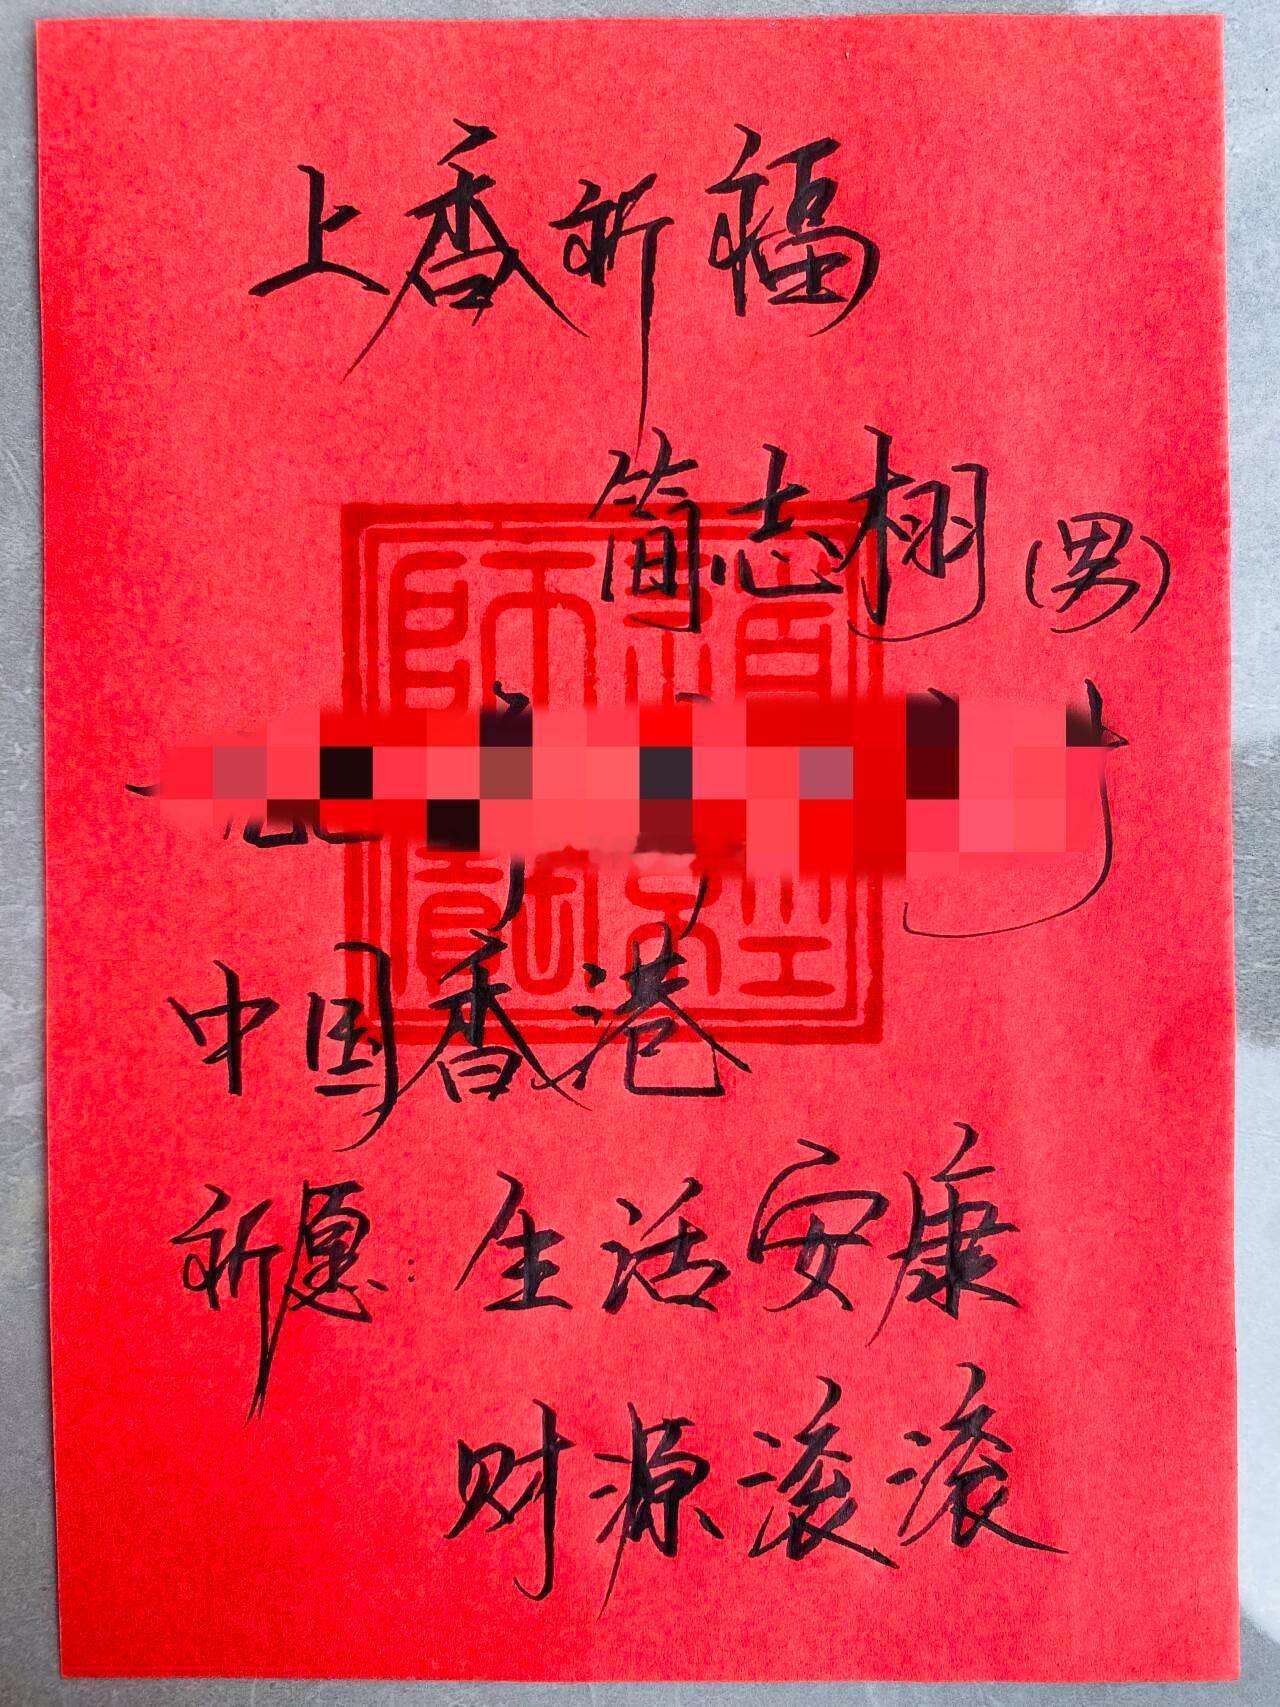 上香祈福
简志栩(男)
中国香港
祈愿：生活安康
财源滚滚